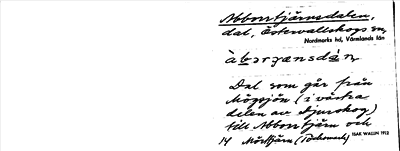 Abborrtjärnsdalen,
dal, Östervallskogs sn,
Nordmarks hd, Värmlands län
Dal som går från
Mögsjön (i västra
delen av Djurskog)
till Abborrtjärn och
14 Mörttjärn
ISAK WALLIN 1912